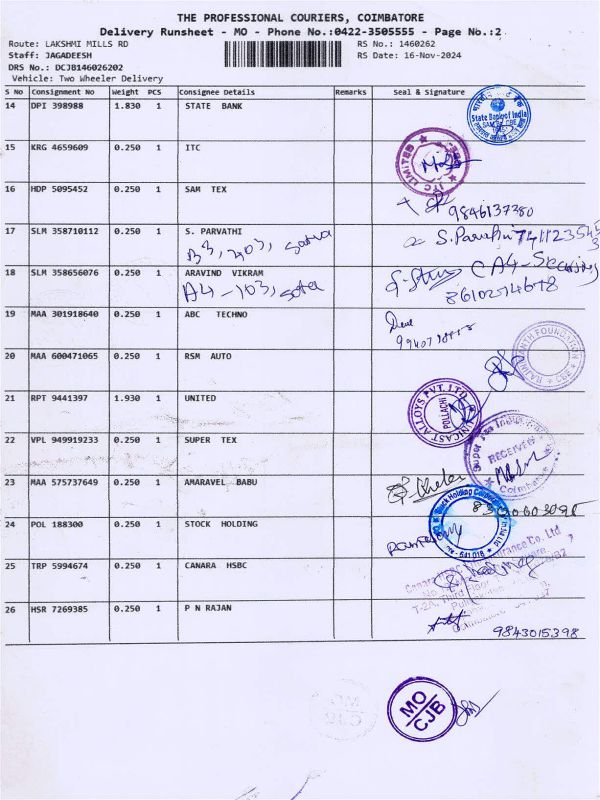 THE PROFESSIONAL COURIERS, COIMBATORE
Delivery Runsheet - MO - Phone No.:0422-3505555 - Page No.:2
Route: LAKSHMI MILLS RD RS No.: 1460262
Staff: JAGADEESH RS Date: 16-Nov-2024
DRS No.: DCJB146026202
Vehicle: Two Wheeler Delivery
S No Consignment No Weight PCS Consignee Details Remarks Seal & Signature
14 DPI 398988 1.830 1 STATE BANK
State Bank of India
15 KRG 4659609 0.250 1 ITC
ITC LIMITED
16 HDP 5095452 0.250 1 SAM TEX
9846137380
17 SLM 358710112 0.250 1 S. PARVATHI
B3, 203, satva S.Parvathi
18 SLM 358656076 0.250 1 ARAVIND VIKRAM
A4-103, satva A4-Security
8610274678
19 MAA 301918640 0.250 1 ABC TECHNO
20 MAA 600471065 0.250 1 RSM AUTO
FOUNDATION
21 RPT 9441397 1.930 1 UNITED
ALLOYS PVT. LTD. POLLACHI
22 VPL 949919233 0.250 1 SUPER TEX
RECEIVED
Coimbatore
23 MAA 575737649 0.250 1 AMARAVEL BABU
24 POL 188300 0.250 1 STOCK HOLDING
Stock Holding
25 TRP 5994674 0.250 1 CANARA HSBC
Canara
26 HSR 7269385 0.250 1 P N RAJAN
9843015398
MO
CJB